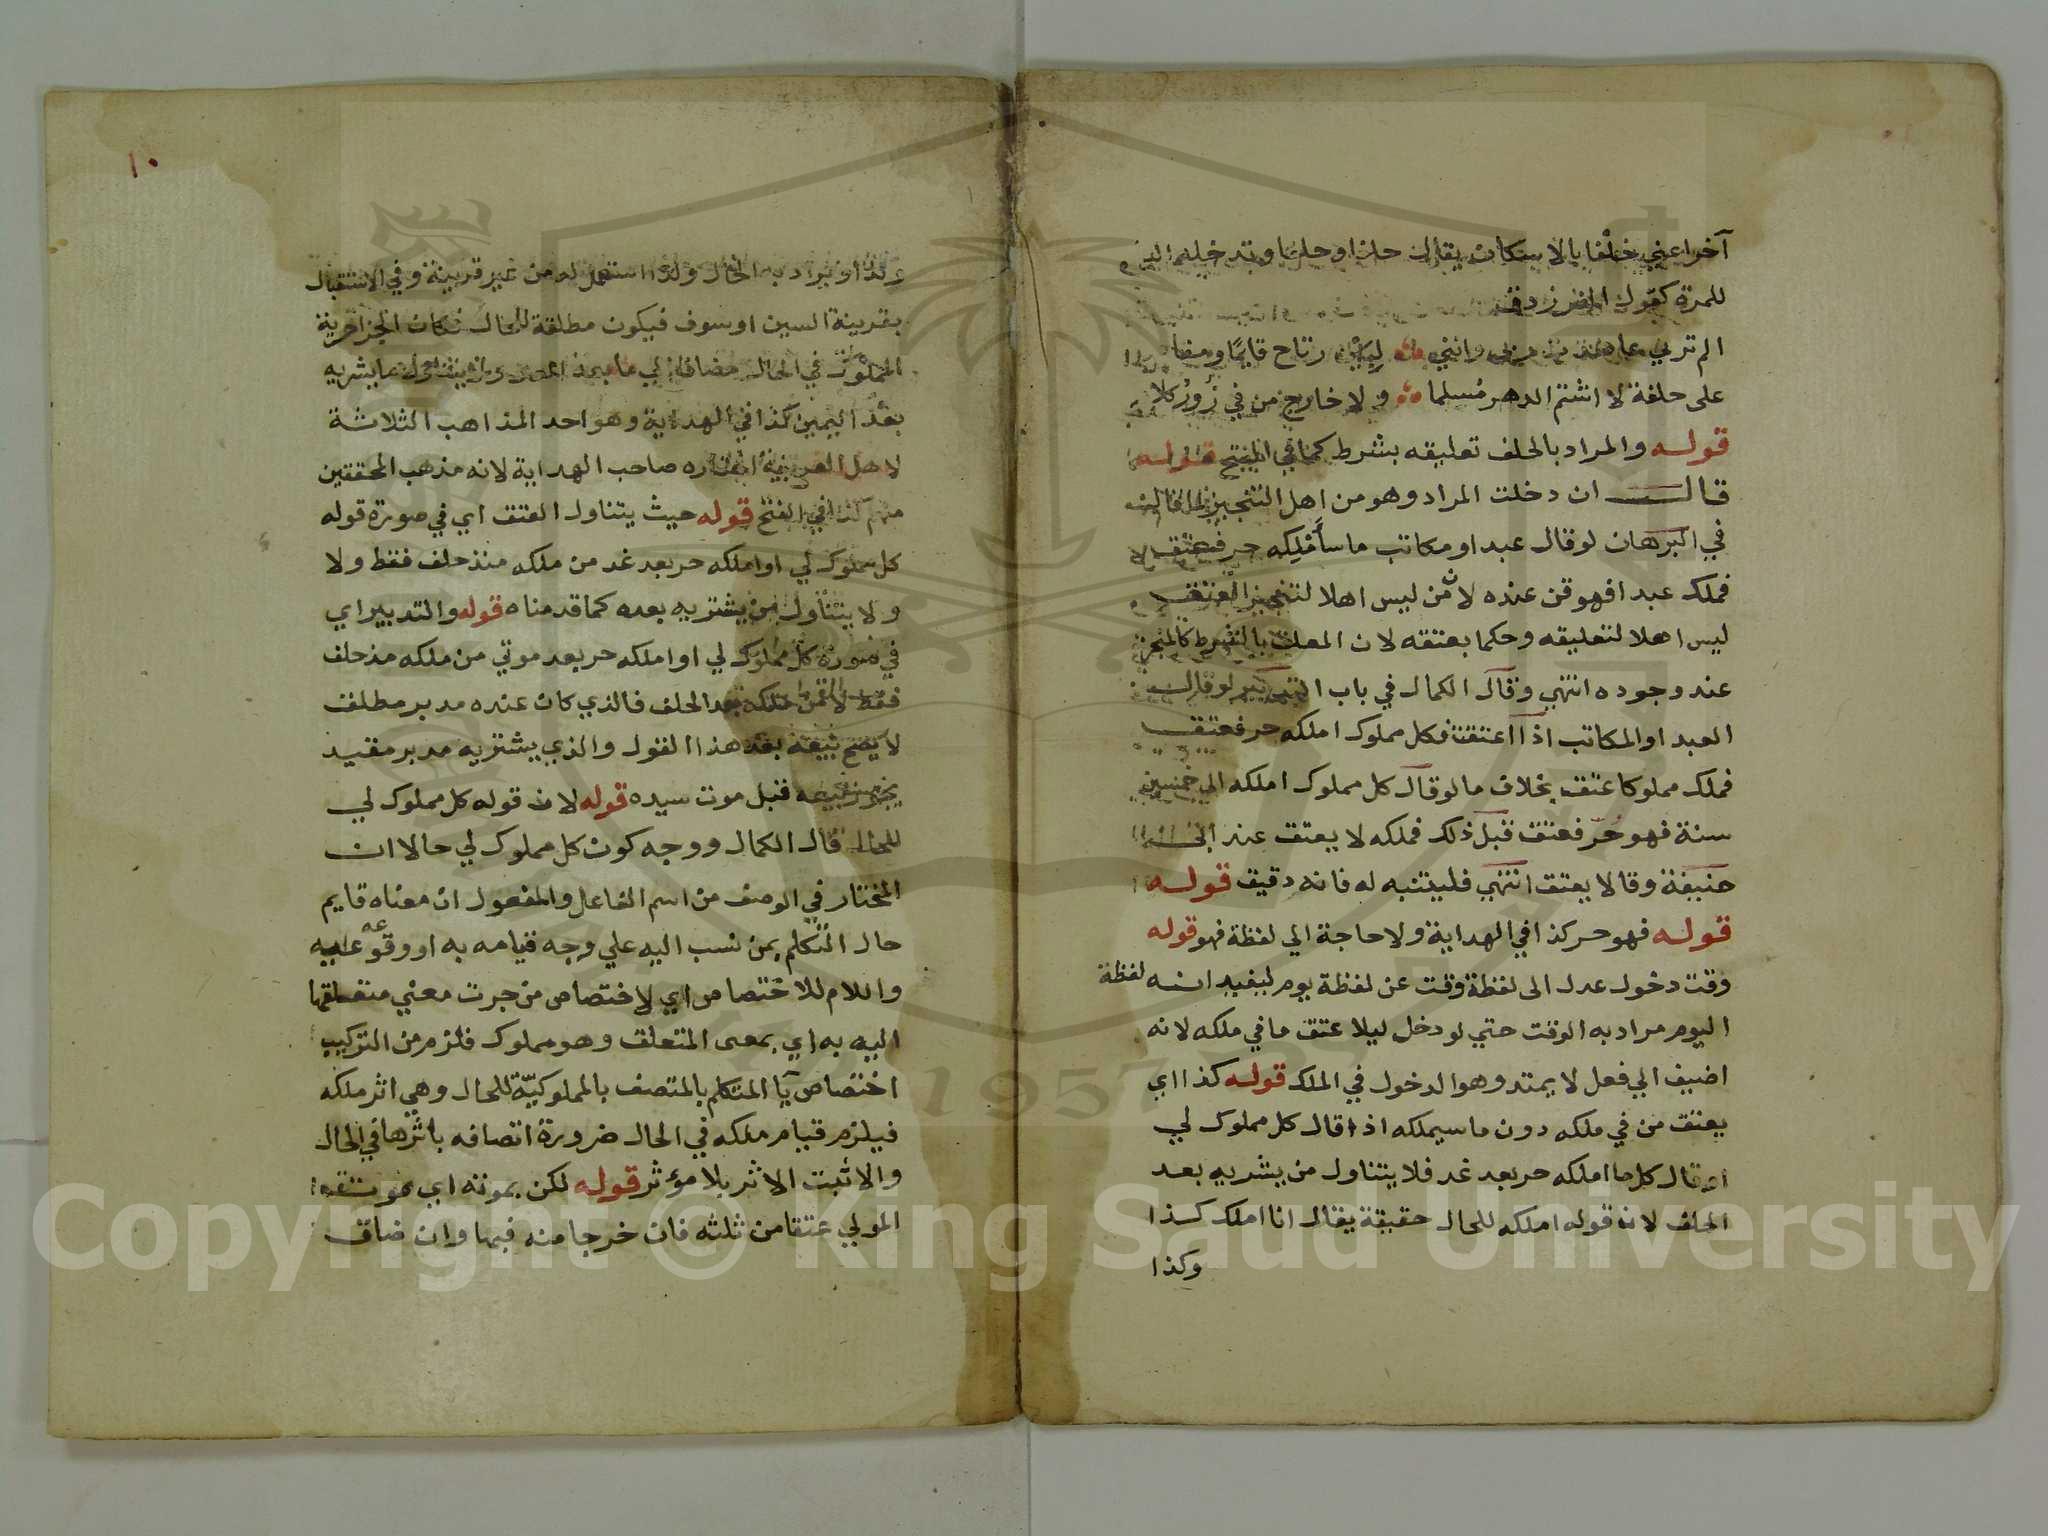 آخر اعني حلفا بالاسكان يقال حلفا وحلفا وتدخله التا
للمرة كقول الفرزدق
الم ترني عاهدت ربي وانني لبين رتاج قايما ومقام
على حلفة لا اشتم الدهر مسلما ولا خارج من في زور كلام
قوله والمراد بالحلف تعليقه بشرط كما في الفتح قوله
قال ان دخلت المراد وهو من اهل التنجيز لما قال
في البرهان لو قال عبد او مكاتب ما سأملكه حر فعتق
فملك عبدا فهو قن عنده لان من ليس اهلا لتنجيز العتق
ليس اهلا لتعليقه وحكما بعتقه لان المعلق بالشرط كالمنجز
عند وجوده انتهي وقال الكمال في باب التدبير لو قال
العبد او المكاتب اذا اعتقت فكل مملوك املكه حر فعتق
فملك مملوكا عتق بخلاف ما لو قال كل مملوك املكه الي خمسين
سنة فهو حر فعتق قبل ذلك فملكه لا يعتق عند ابي
حنيفة وقالا يعتق انتهي فلينتبه له فانه دقيق قوله
قوله فهو حر كذا في الهداية ولا حاجة الي لفظة فهو قوله
وقت دخول عدل الى لفظة وقت عن لفظة يوم ليفيد انه لفظة
اليوم مراد به الوقت حتي لو دخل ليلا عتق ما في ملكه لانه
اضيف الي فعل لا يمتد وهو الدخول في الملك قوله كذا اي
يعتق من في ملكه دون ما سيملكه اذا قال كل مملوك لي
او قال كل ما املكه حر بعد غد فلا يتناول من يشريه بعد
الحلف لانه قوله املكه للحال حقيقة يقال انا املك كذا
وكذا
١٠
وكذا ويراد به الحال ولذا استعمل له من غير قرينة وفي الاستقبال
بقرينة السين او سوف فيكون مطلقة للحال فكان الجزا حرية
المملوك في الحال مضافا الي ما بعد الغد فلا يتناول ما يشريه
بعد اليمين كذا في الهداية وهو احد المذاهب الثلاثة
لاهل العربية اختاره صاحب الهداية لانه مذهب المحققين
منهم كذا في الفتح قوله حيث يتناول العتق اي في صورة قوله
كل مملوك لي او املكه حر بعد غد من ملكه منذ حلف فقط ولا
ولا يتناول من يشتريه بعده كما قدمناه قوله والتدبير اي
في صورة كل مملوك لي او املكه حر بعد موتي من ملكه مذ حلف
فقط لا من ملكه بعد الحلف فالذي كان عنده مدبر مطلق
لا يصح بيعه بعد هذا القول والذي يشتريه مدبر مقيد
يجوز بيعه قبل موت سيده قوله لان قوله كل مملوك لي
للحال قال الكمال ووجه كون كل مملوك لي حالا ان
المختار في الوصف من اسم الفاعل والمفعول ان معناه قايم
حال التكلم بمن نسب اليه علي وجه قيامه به او وقوعه عليه
واللام للاختصاص اي لاختصاص من جرت معني متعلقها
اليه به اي بمعنى المتعلق وهو مملوك فلزم من التركيب
اختصاص يآ المتكلم بالمتصف بالمملوكيّة للحال وهي اثر ملكه
فيلزم قيام ملكه في الحال ضرورة اتصافه باثرها في الحال
والا ثبت الاثر بلا مؤثر قوله لكن بموته اي بموت
المولي عتقا من ثلثه فان خرجا منه فبها وان ضاق